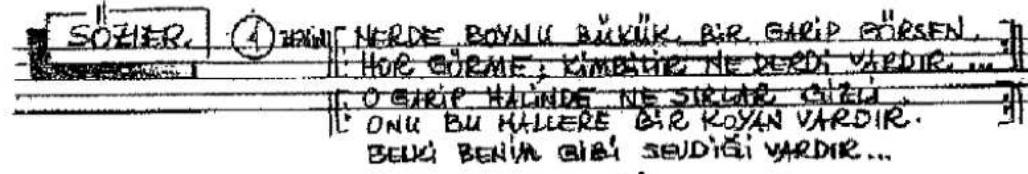 SÖZLER. 1 NERDE BOYNU BÜKÜK BİR GARİP GÖRSEN,
HOR GÖRME; KİMBİLİR NE DERDİ VARDIR...
O GARİP HALİNDE NE SIRLAR GİZLİ,
ONU BU HALLERE BİR KOYAN VARDIR.
BELKİ BENİM GİBİ SEVDİĞİ VARDIR...